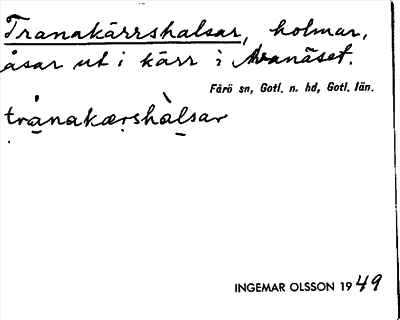 Tranakärrshalsar, holmar,
åsar ut i kärr i Avanäset.
Fårö sn, Gotl. n. hd, Gotl. län.
trånakærshàlsar
INGEMAR OLSSON 1949